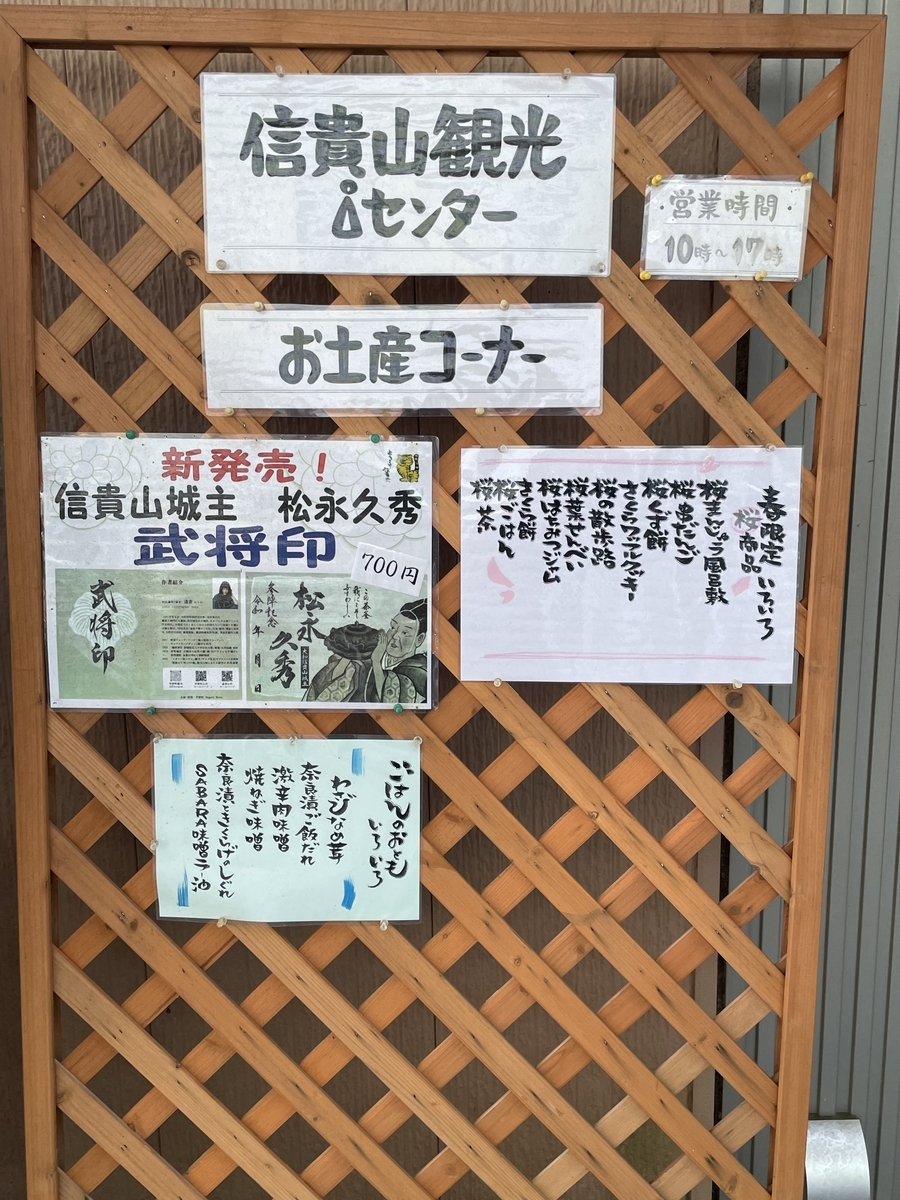 信貴山観光
iセンター
・営業時間・
10時～17時
お土産コーナー
新発売！
信貴山城主 松永久秀
武将印
700円
武将印
作者紹介
この茶釜
我にこそ
ふさわし、
松永
久秀
参陣記念
令和 年 月 日
春限定 いろいろ
桜商品
桜まんじゅう風呂敷
桜串だんご
桜くず餅
さくらワッフルクッキー
桜の散歩路
桜葉せんべい
桜はちみつジャム
さくら餅
桜ごはん
桜茶
ごはんのおとも
いろいろ
わさびなめ茸
奈良漬ご飯だれ
激辛肉味噌
焼ねぎ味噌
奈良漬ときくらげのしぐれ
SABARA味噌ラー油